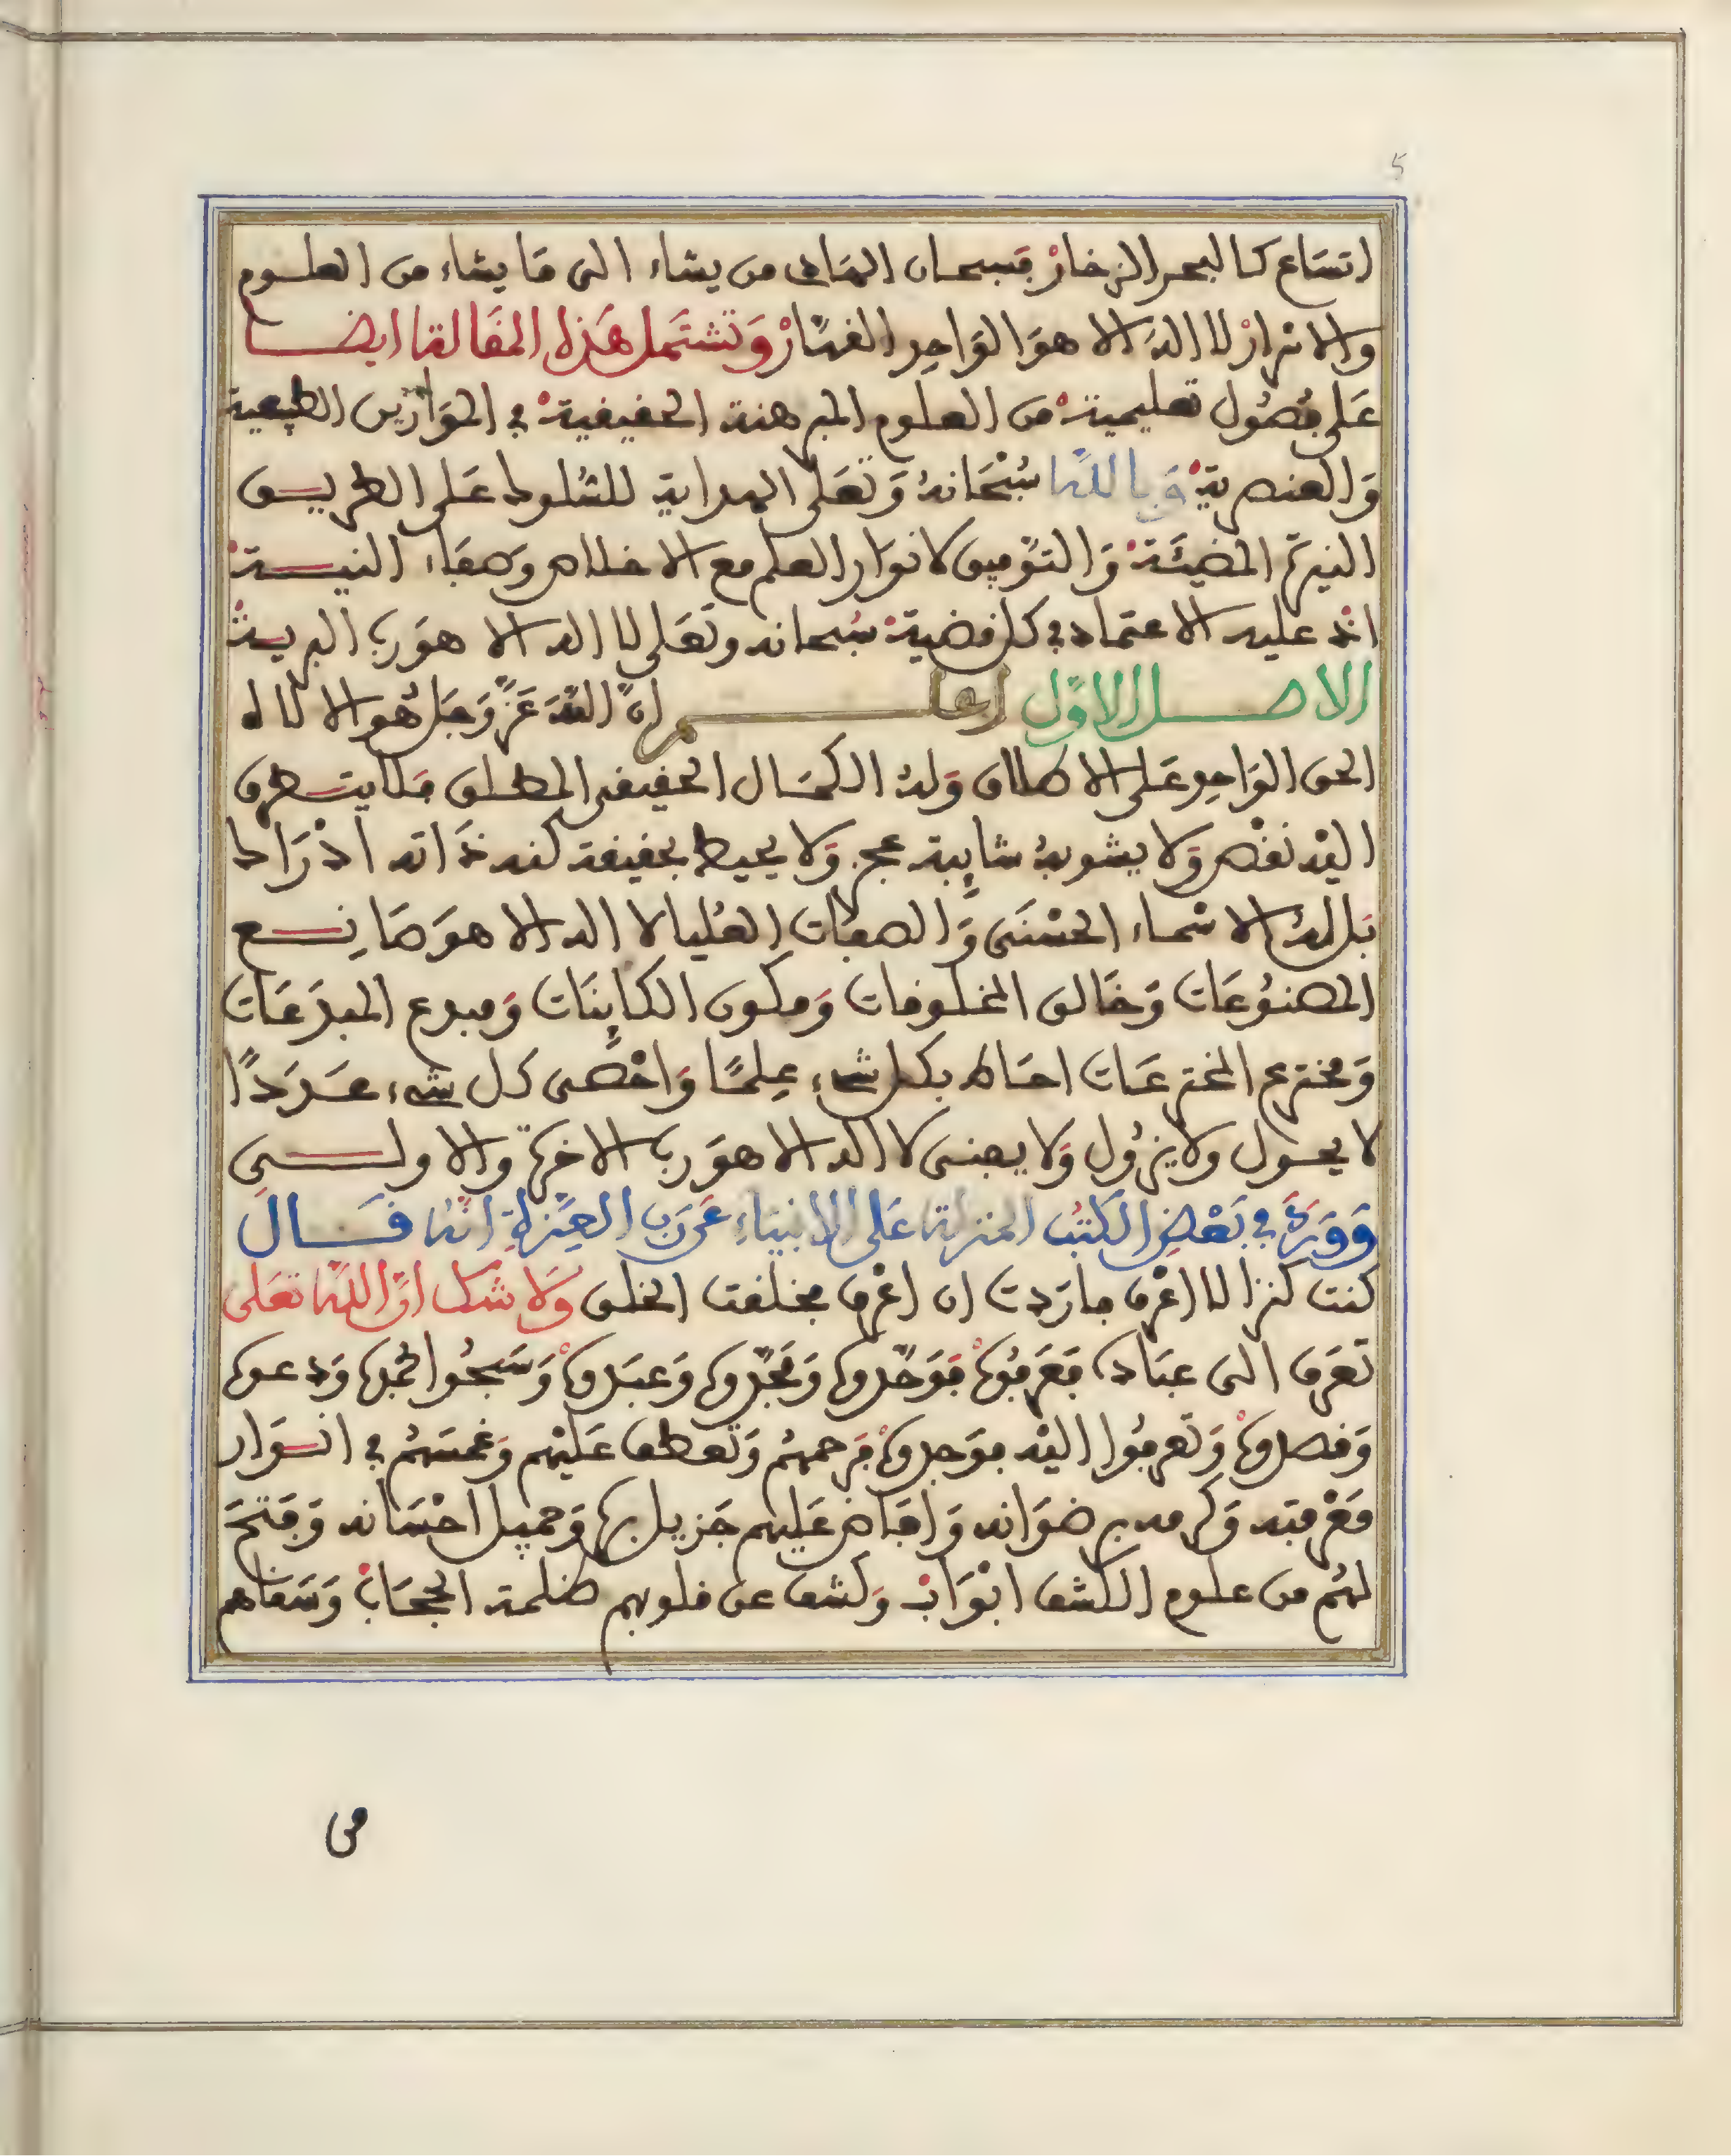 5
اتساع كالبحر الزخار فسبحان الهادى من يشاء الى ما يشاء من العلوم
والاسرار لا اله الا هو الواحد القهار وتشتمل هذه المقالة ايضا
على فصول تعليمية من العلوم المبرهنة الحقيقية في الموازين الطبيعية
والعنصرية وبالله سبحانه وتعلى الهداية للسلوك على الطريق
النيرة المضيئة والتوفيق لانوار العلم مع الاخلاص وصفاء النية
انه عليه الاعتماد في كل قضية سبحانه وتعلى لا اله الا هو رب البرية
الاصل الاول اعلم ان الله عز وجل هو الا لاه
الحق الواحد على الاطلاق وله الكمال الحقيقى المطلق فلا يتطرق
اليه نقص ولا يشوبه شايبة عجز ولا يحيط بحقيقة كنه ذاته ادراك
بل له الاسماء الحسنى والصفات العليا لا اله الا هو صانع
المصنوعات وخالق المخلوقات ومكون الكاينات ومبدع المبدعات
ومخترع المخترعات احاط بكل شىء علما واحصى كل شىء عددا
لا يحول ولا يزول ولا يفنى لا اله الا هو رب الاخرة والاولى
وورد في بعض الكتب المنزلة على الانبياء عن رب العزة انه قال
كنت كنزا لا اعرف فاردت ان اعرف فخلقت الخلق ولا شك ان الله تعلى
تعرف الى عباده فعرفوه فوحدوه ومجدوه وعبدوه وسبحوا بحمده ودعوه
وقصدوه وتعرفوا اليه فوجدوه فرحمهم وتعطف عليهم وغمسهم في انوار
معرفته وكرمه برضوانه وافاض عليهم جزيل بره وجميل احسانه وفتح
لهم من علوم الكشف ابواب وكشف عن قلوبهم ظلمة الحجاب وسقاهم
من